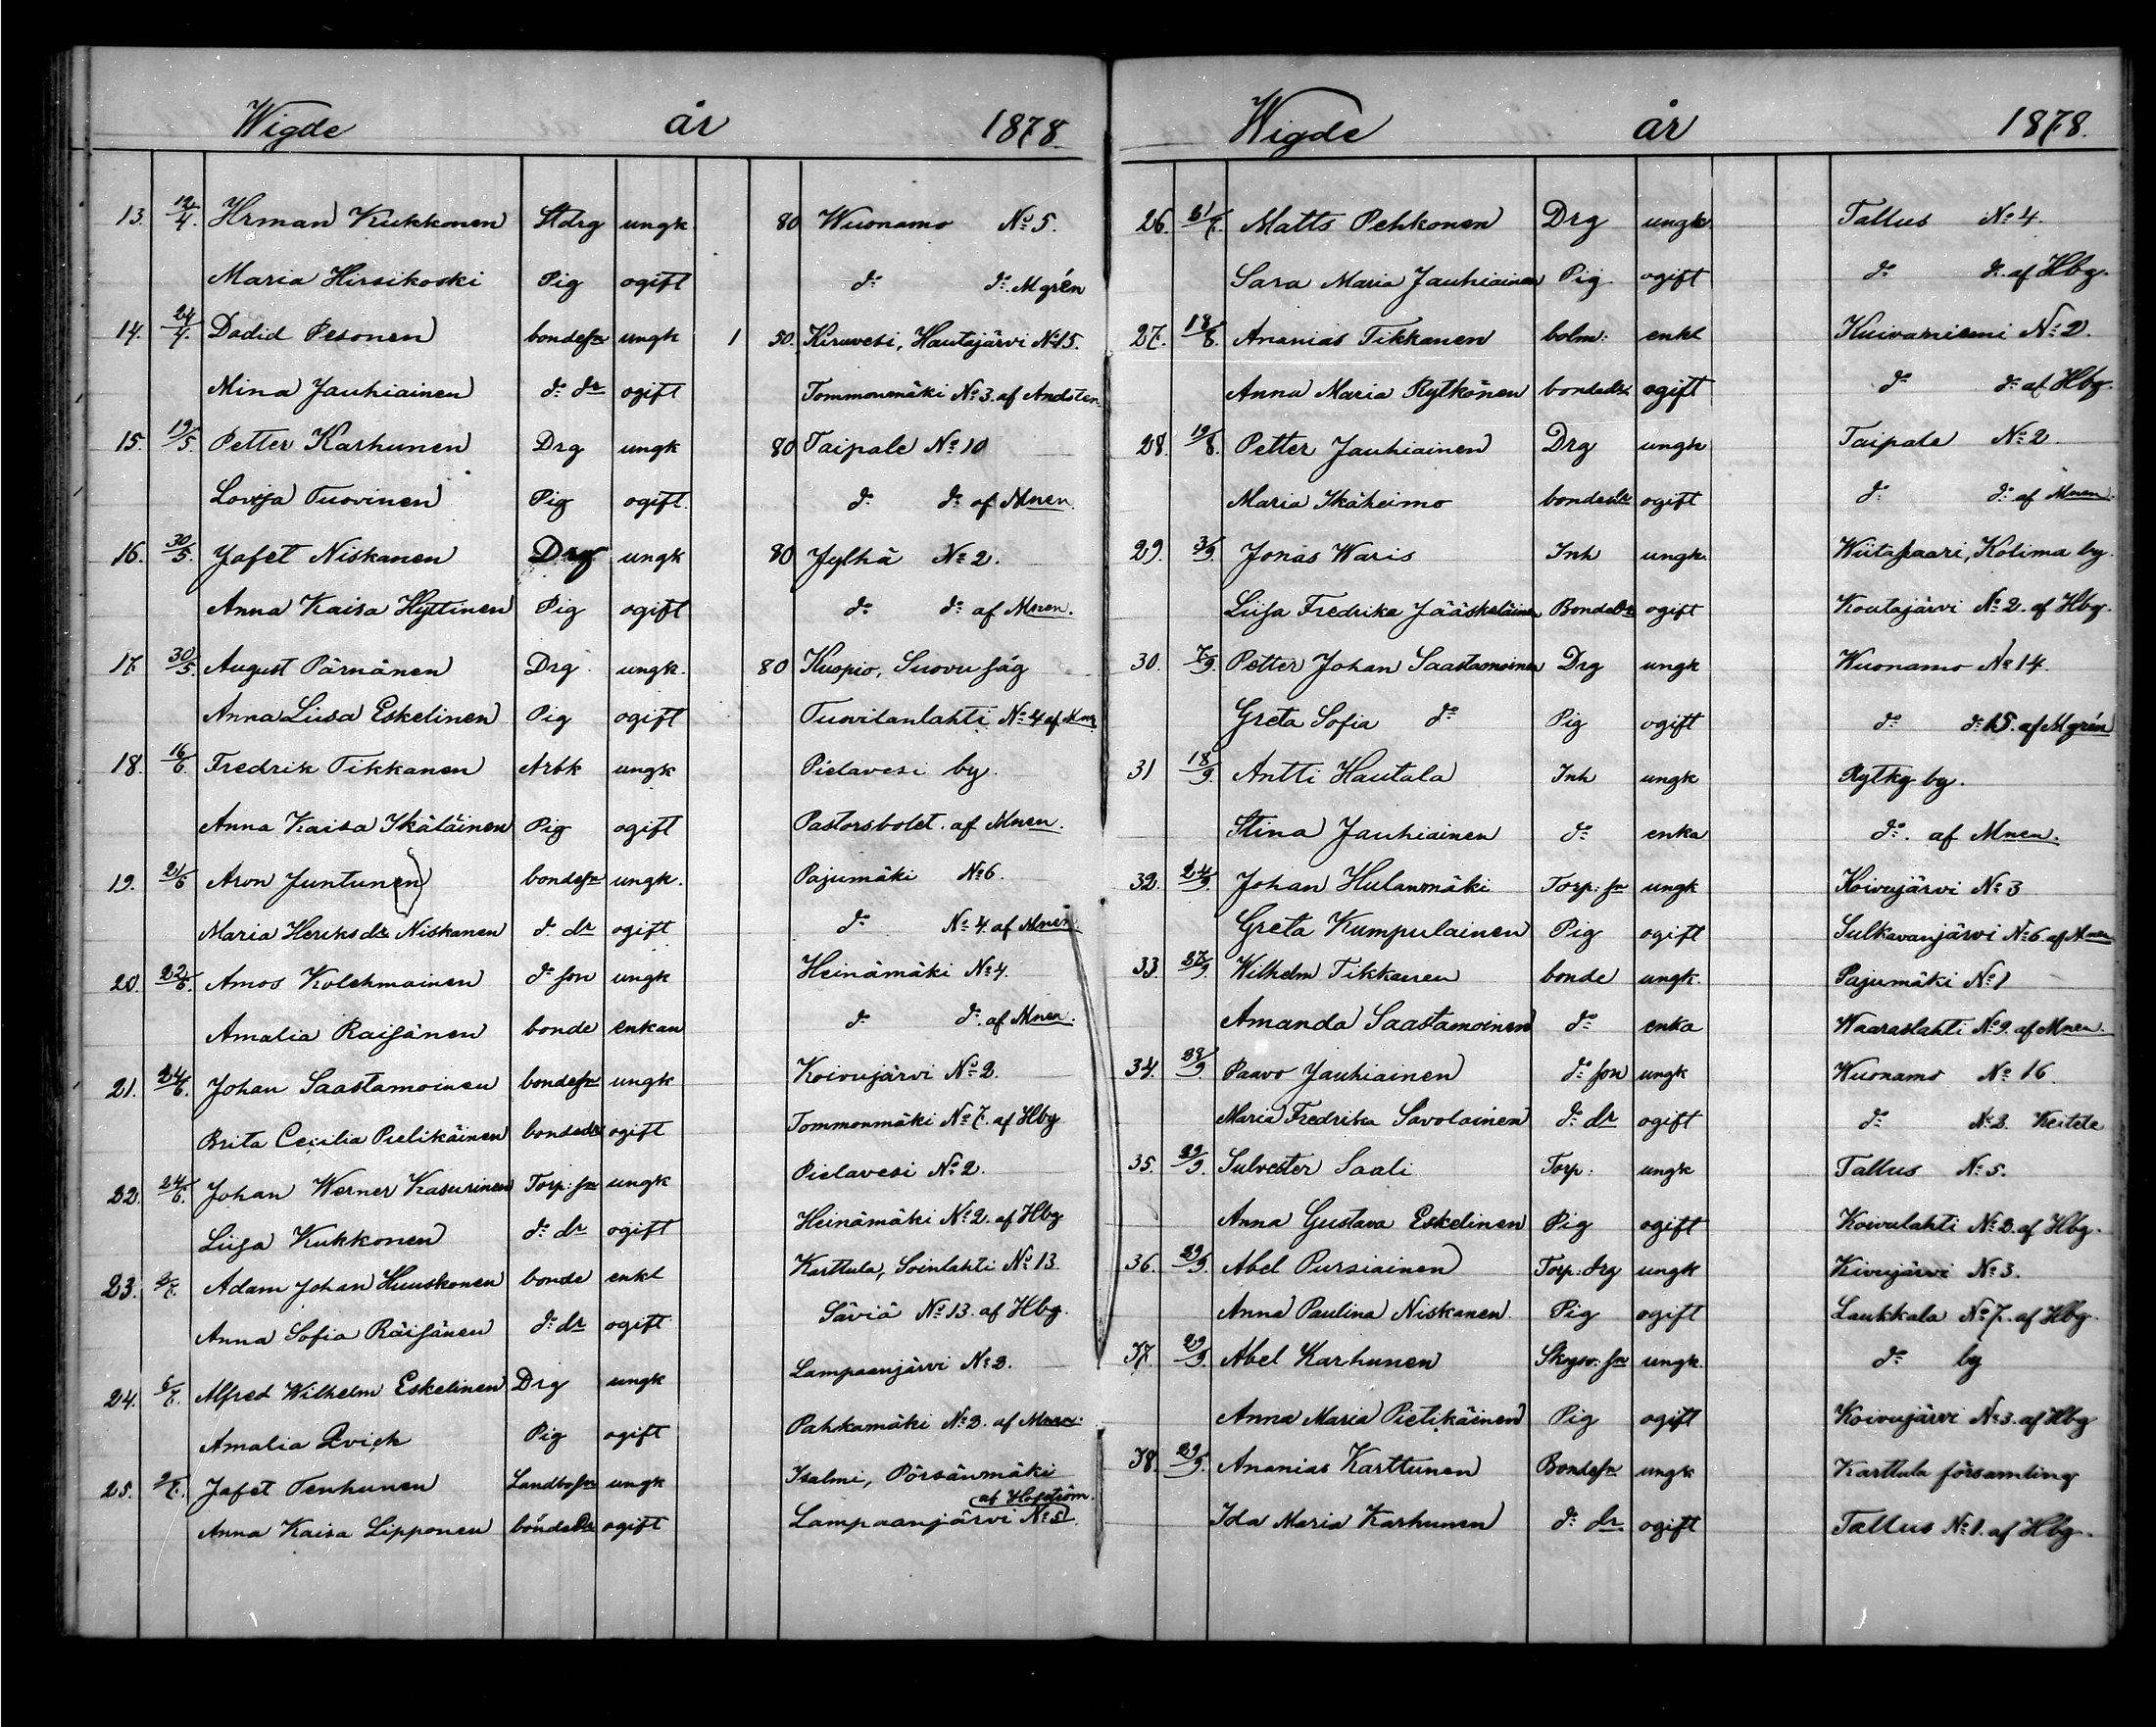 Wigde år 1878.
13. 12/4. Hrman Kukkonen Stdrg ungk 80 Wuonamo No 5.
Maria Hirsikoski Pig ogift do do Mgrén
14. 24/4. Dadid Pesonen bondesn ungk 1 50. Kiruvesi, Hautajärvi No 15.
Mina Jauhiainen do dr ogift Tommonmäki No 3. af Andsten.
15. 19/5. Petter Karhunen Drg ungk 80 Taipale No 10
Lovisa Tuovinen Pig ogift. do do af Mnen.
16. 30/5. Jafet Niskanen Drg ungk 80 Jylhä No 2.
Anna Kaisa Hyttinen Pig ogift do do af Mnen.
17. 30/5. August Pärnänen Drg ungk. 80 Kuopio, Suovu såg
Anna Liisa Eskelinen Pig ogift Tuovilanlahti No 4 af Mnn
18. 16/6. Fredrik Tikkanen Arbk ungk Pielavesi by.
Anna Kaisa Ikäläinen Pig ogift Pastorsbolet. af Mnen.
19. 21/6 Aron Juntunen bondesn ungk. Pajumäki No 6.
Maria Heriksdr Niskanen d. dr ogift do No 4. af Mnen.
20. 22/6. Amos Kolehmainen do son ungk Heinämäki No 4.
Amalia Raisänen bonde enkan do do. af Mnen.
21. 24/6. Johan Saastamoinen bondesn ungk Koivujärvi No 2.
Brita Cecilia Pielikäinen bondedr ogift Tommonmäki No 7. af Hbg
22. 24/6. Johan Werner Kasurinen Torp: sn ungk Pielavesi No 2.
Liisa Kukkonen do dr ogift Heinämäki No 2. af Hbg
23. 2/7. Adam Johan Huuskonen bonde enkl Karttula, Soinlahti No 13.
Anna Sofia Räisänen do dr ogift Säviä No 13. af Hbg.
24. 6/7. Alfred Wilhelm Eskelinen Drg ungk Lampaanjärvi No 3.
Amalia Qvick Pig ogift Pahkamäki No 2. af Mnen.
25. 9/7. Jafet Tenhunen Landbosn ungk Isalmi, Pörsänmäki
af Hofström.
Anna Kaisa Lipponen bondedr ogift Lampaanjärvi No 5.
Wigde år 1878.
26. 31/7. Matts Pehkonen Drg ungk. Tallus No 4.
Sara Maria Jauhiainen Pig ogift do do. af Hbg.
27. 18/8. Ananias Tikkanen bolm: enkl Kuivaniemi No 2.
Anna Maria Rytkönen bondedr ogift do do af Hbg.
28. 19/8. Petter Jauhiainen Drg ungk Taipale No 2.
Maria Ikäheimo bondedr ogift do do af Mnen.
29. 3/9. Jonas Waris Inh ungk. Wiitasaari, Kolima by.
Liisa Fredrika Jääskeläinen Bondedr ogift Koutajärvi No 2. af Hbg.
30. 7/9. Petter Johan Saastamoinen Drg ungk Wuonamo No 14.
Greta Sofia do Pig ogift do do 15. af Mgrén
31 18/9. Antti Hautala Inh ungk Rytkg by.
Stina Jauhiainen do enka do. af Mnen.
32. 24/9. Johan Hulanmäki Torp: sn ungk Koivujärvi No 3
Greta Kumpulainen Pig ogift Sulkavanjärvi No 6. af Mnen
33. 27/9. Wilhelm Tikkanen bonde ungk. Pajumäki No 1
Amanda Saastamoinen do enka Waaraslahti No 9. af Mnen.
34. 28/9. Paavo Jauhiainen do son ungk Wuonamo No 16.
Maria Fredrika Savolainen do dr ogift do No 3. Keitele
35. 29/9. Sulvester Saali Torp: ungk Tallus No 5.
Anna Gustava Eskelinen Pig ogift Koivulahti No 2. af Hbg.
36. 29/9. Abel Pursiainen Torp: drg ungk Kivujärvi No 3.
Anna Paulina Niskanen. Pig ogift Laukkala No 7. af Hbg.
37. 29/9. Abel Karhunen Skgsv: sn ungk. do by
Anna Maria Pietikäinen Pig ogift Koivujärvi No 3. af Hbg
38. 29/9. Ananias Karttunen Bondesn ungk Karttula församling
Ida Maria Karhunen do dr. ogift Tallus No 1. af Hbg.